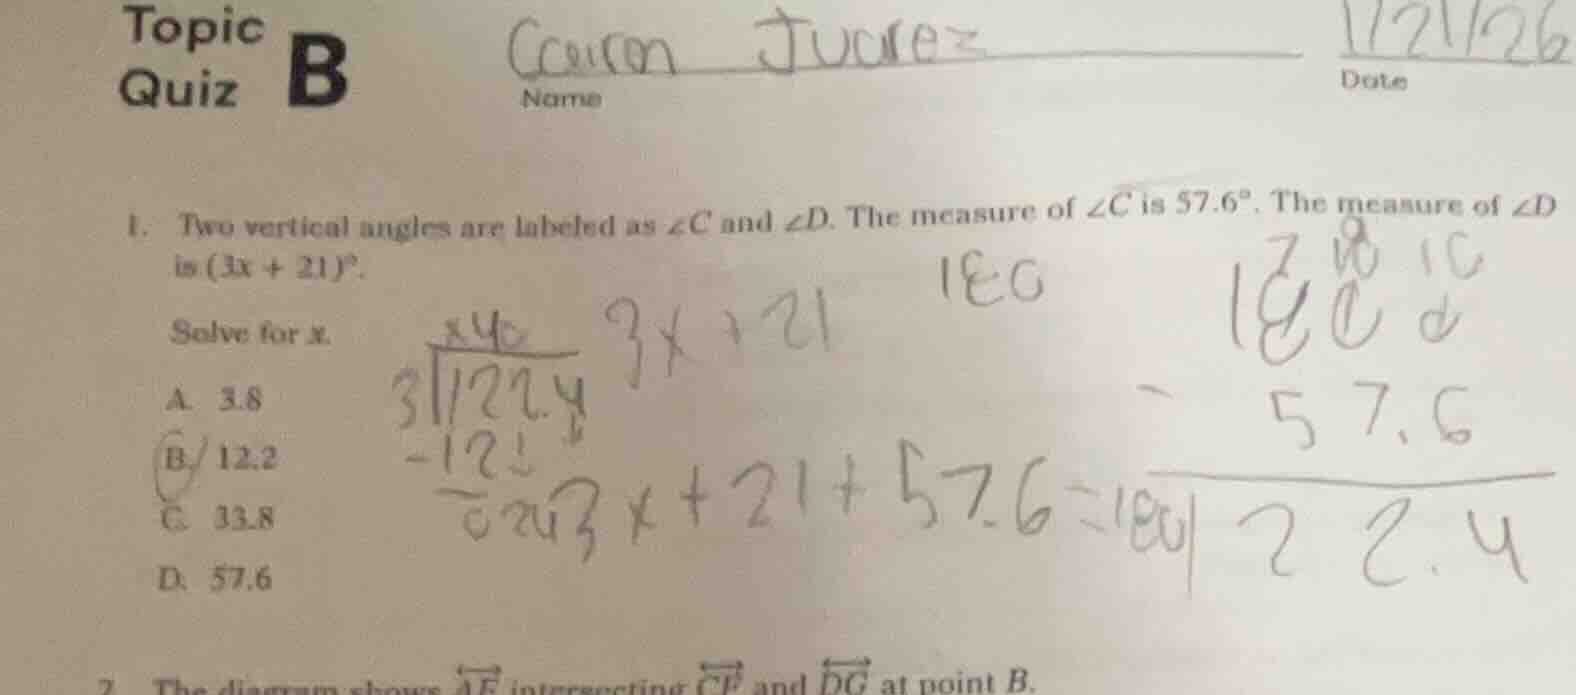 Topic Quiz B
Juarez 1/21/26
Name Date
1. Two vertical angles are labeled as ∠C and ∠D. The measure of ∠C is 57.6°. The measure of ∠D
is (3x + 21)°.
Solve for x.
A. 3.8
B. 12.2
C. 33.8
D. 57.6
x40
3 122.4
-121
024
3x + 21
180
3x + 21 + 57.6 = 180
7 10
180
- 57.6
122.4
2. The diagram shows AE intersecting CF and DG at point B.